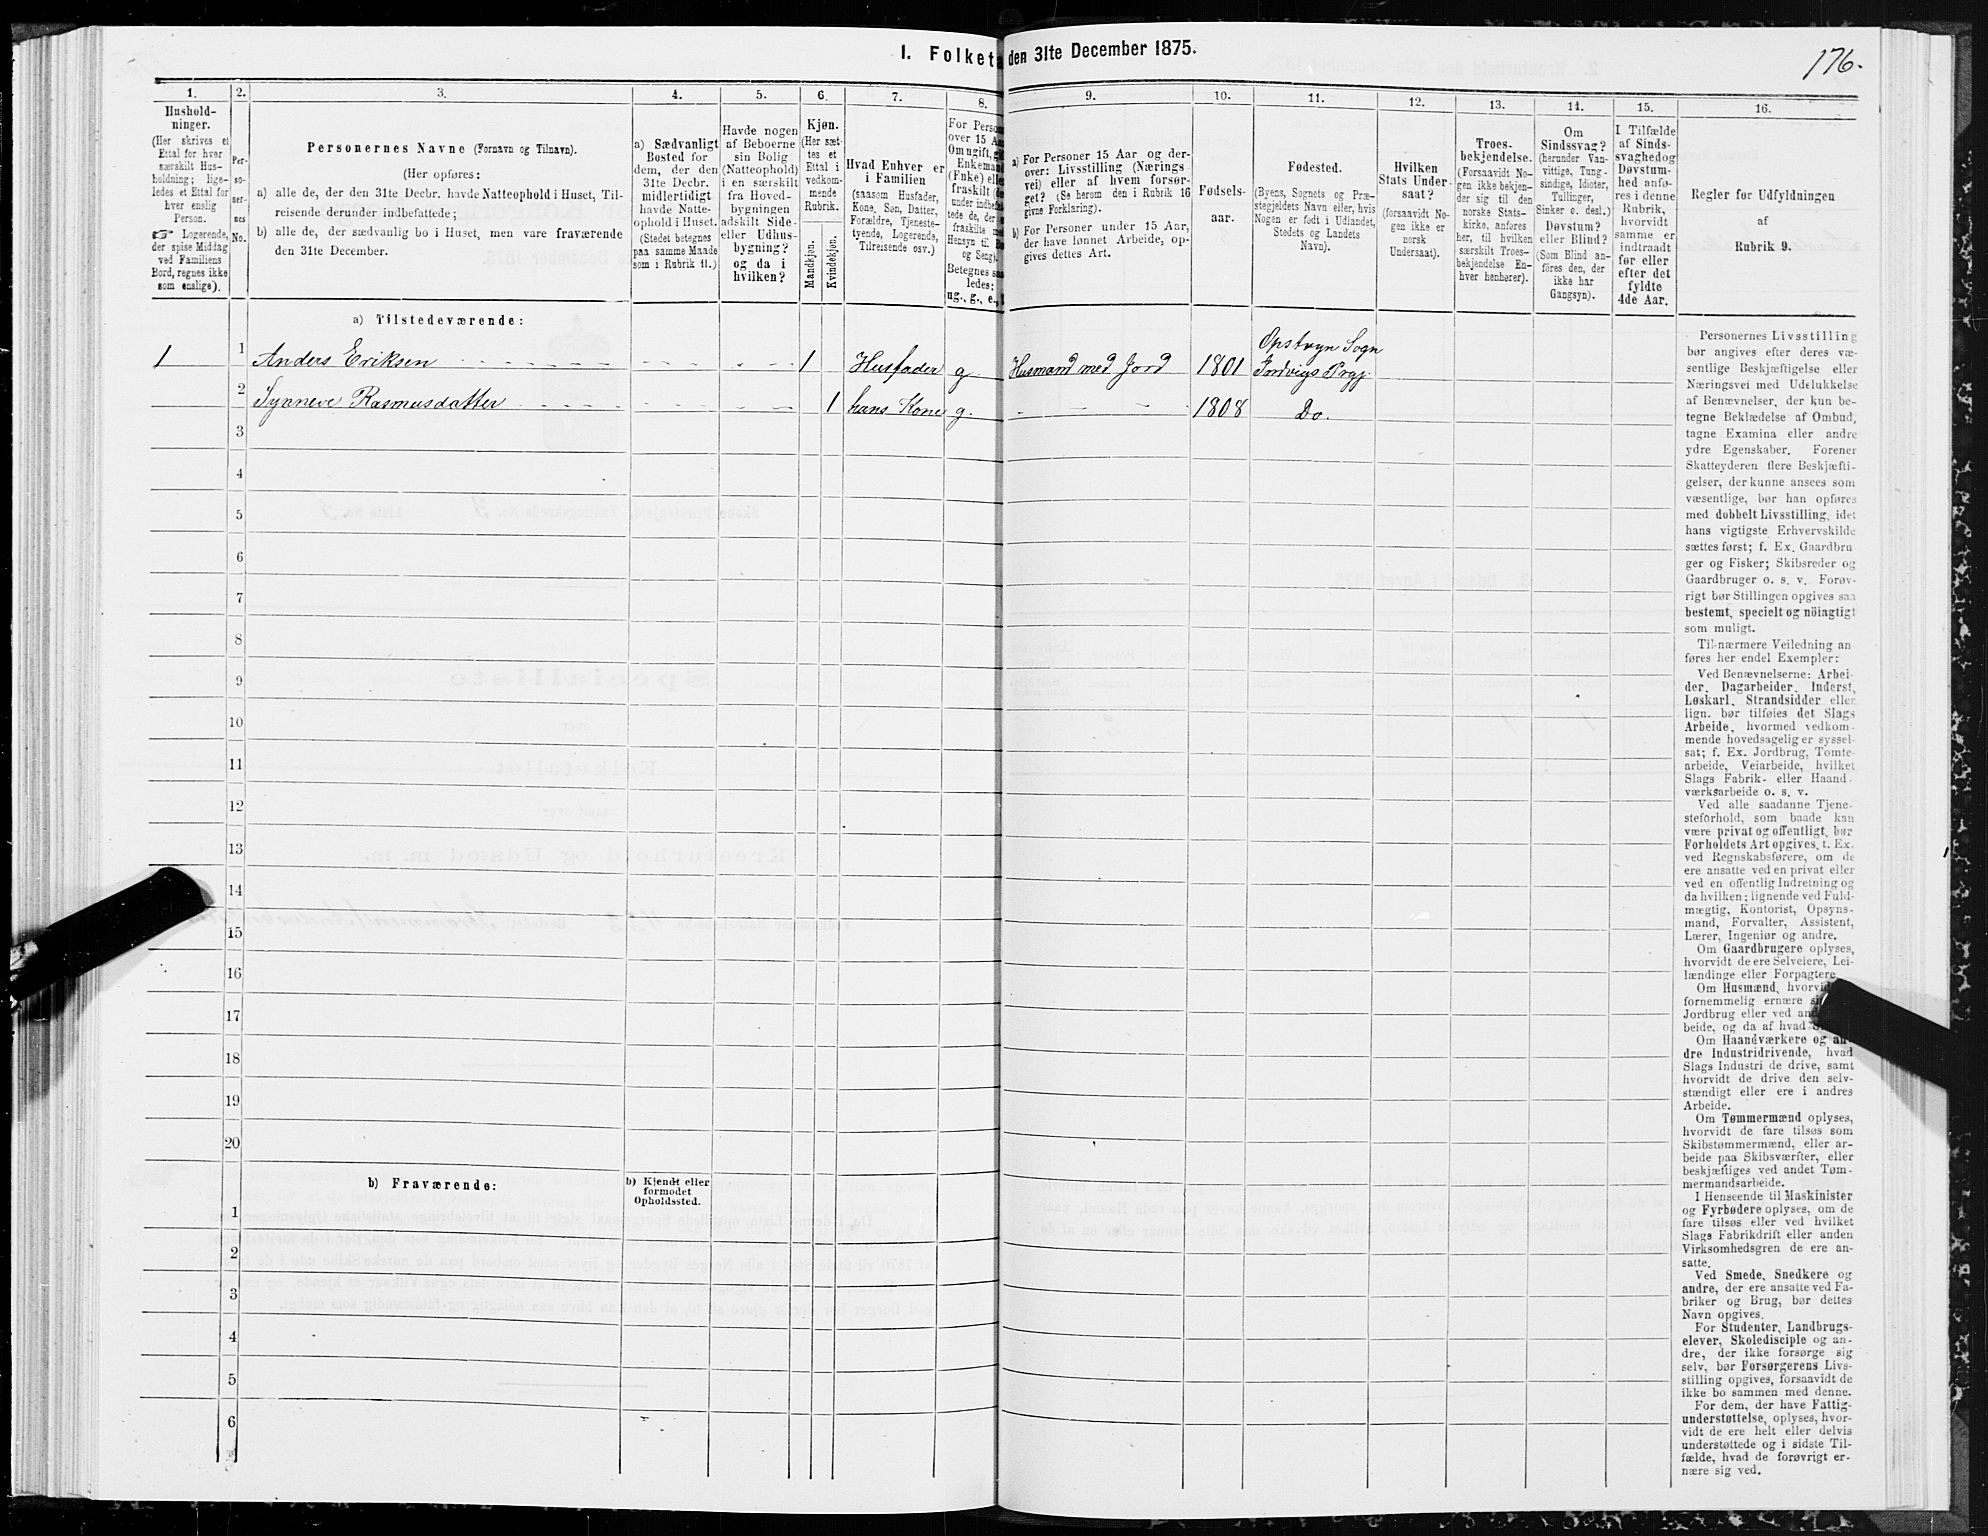 I. Folketa
den 31te December 1875.
176.
1.
2.
3.
4.
5.
6.
7.
8.
9.
10.
11.
12.
13.
14.
15.
16.
Hushold-
ninger.
(Her skrives et
Ettal for hver
særskilt Hus-
holdning; lige-
ledes et Ettal for
hver enslig
Person.
☞ Logerende,
der spise Middag
ved Familiens
Bord, regnes ikke
som enslige).
Per-
so-
ner-
nes
No.
Personernes Navne (Fornavn og Tilnavn).
(Her opføres:
a) alle de, der den 31te Decbr. havde Natteophold i Huset, Til-
reisende derunder indbefattede;
b) alle de, der sædvanlig bo i Huset, men vare fraværende
den 31te December.
a) Sædvanligt
Bosted for
dem, der den
31te Decbr.
midlertidigt
havde Natte-
ophold i Huset.
(Stedet betegnes
paa samme Maade
som i Rubrik 11.)
Havde nogen
af Beboerne
sin Bolig
(Natteophold)
i en særskilt
fra Hoved-
bygningen
adskilt Side-
eller Udhus-
bygning?
og da i
hvilken?
Kjøn.
(Her sæt-
tes et
Ettal i
vedkom-
mende
Rubrik.
Mandkjøn.
Kvindekjøn.
Hvad Enhver er
i Familien
(saasom Husfader,
Kone, Søn, Datter,
Forældre, Tjeneste-
tyende, Logerende,
Tilreisende osv.)
For Perso
over 15 Aa
Om ugift, gi
Enkeman
(Enke) elle
fraskilt (d
under indbe
tede de, der
fraskilte m
Hensyn til B
og Seng).
Betegnes saa
ledes:
ug., g., e.,
a) For Personer 15 Aar og der-
over: Livsstilling (Nærings-
vei) eller af hvem forsør-
get? (Se herom den i Rubrik 16
givne Forklaring).
b) For Personer under 15 Aar,
der have lønnet Arbeide, op-
gives dettes Art.
Fødsels-
aar.
Fødested.
(Byens, Sognets og Præ-
stegjeldets Navn eller, hvis
Nogen er født i Udlandet,
Stedets og Landets
Navn).
Hvilken
Stats Under-
saat?
(forsaavidt No-
gen ikke er
norsk
Undersaat).
Troes-
bekjendelse.
(Forsaavidt No-
gen ikke bekjen-
der sig til den
norske Stats-
kirke, anføres
her, til hvilken
særskilt Troes-
bekjendelse En-
hver henhører).
Om
Sindssvag?
(herunder Van-
vittige, Tung-
sindige, Idioter,
Tullinger,
Sinker o. desl.)
Døvstum?
eller Blind?
(Som Blind an-
føres den, der
ikke har
Gangsyn).
I Tilfælde
af Sinds-
svaghed og
Døvstum-
hed anfø-
res i denne
Rubrik,
hvorvidt
samme er
indtraadt
før eller
efter det
fyldte
4de Aar.
Regler for Udfyldningen
af
Rubrik 9.
a) Tilstedeværende:
1 1 Anders Eriksen 1 Husfader g. Husmand med Jord 1801 Opstryn Sogn
Indvigs Prgj.
2 Synneve Rasmusdatter 1 hans Kone g. 1808 Do.
3
4
5
6
7
8
9
10
11
12
13
14
15
16
17
18
19
20
b) Fraværende:
b) Kjendt eller
formodet
Opholdssted.
1
2
3
4
5
6
Personernes Livsstilling
bør angives efter deres væ-
sentlige Beskjæftigelse eller
Næringsvei med Udelukkelse
af Benævnelser, der kun be-
tegne Beklædelse af Ombud,
tagne Examina eller andre
ydre Egenskaber. Forener
Skatteyderen flere Beskjæfti-
gelser, der kunne ansees som
væsentlige, bør han opføres
med dobbelt Livsstilling, idet
hans vigtigste Erhvervskilde
sættes først; f. Ex. Gaardbru
ger og Fisker; Skibsreder og
Gaardbruger o. s. v. Forøv-
rigt bør Stillingen opgives saa
bestemt, specielt og nöiagtigt
som muligt.
Til nærmere Veiledning an-
føres her endel Exempler:
Ved Benævnelserne: Arbei-
der, Dagarbeider, Inderst,
Løskarl, Strandsidder eller
lign. bør tilføies det Slags
Arbeide, hvormed vedkom-
mende hovedsagelig er syssel-
sat; f. Ex. Jordbrug, Tomte-
arbeide, Veiarbeide, hvilket
Slags Fabrik- eller Haand-
værksarbeide o. s. v.
Ved alle saadanne Tjene-
steforhold, som baade kan
være privat og offentligt, bør
Forholdets Art opgives, f. Ex.
ved Regnskabsførere, om de
ere ansatte ved en privat eller
ved en offentlig Indretning og
da hvilken; lignende ved Fuld-
mægtig, Kontorist, Opsyns-
mand, Forvalter, Assistent,
Lærer, Ingeniør og andre.
Om Gaardbrugere oplyses,
hvorvidt de ere Selveiere, Lei-
lændinge eller Forpagtere.
Om Husmænd, hvorvid
fornemmelig ernære si
Jordbrug eller ved an
beide, og da af hvad
Om Haandværkere og an-
dre Industridrivende, hvad
Slags Industri de drive, samt
hvorvidt de drive den selv-
stændigt eller ere i andres
Arbeide.
Om Tømmermænd oplyses,
hvorvidt de fare tilsøs som
Skibstømmermænd, eller ar-
beide paa Skibsværfter, eller
beskjæftiges ved andet Tøm-
mermandsarbeide.
I Henseende til Maskinister
og Fyrbødere oplyses, om de
fare tilsøs eller ved hvilket
Slags Fabrikdrift eller anden
Virksomhedsgren de ere an-
satte.
Ved Smede, Snedkere og
andre, der ere ansatte ved Fa-
briker og Brug, bør dettes
Navn opgives.
For Studenter, Landbrugs-
elever, Skoledisciple og an-
dre, der ikke forsørge sig
selv, bør Forsørgerens Livs-
stilling opgives, forsaavidt de
ikke bo sammen med denne.
For dem, der have Fattig-
understøttelse, oplyses, hvor-
vidt de ere helt eller delvis
understøttede og i sidste Til-
fælde, hvad de forøvrigt er-
nære sig ved.